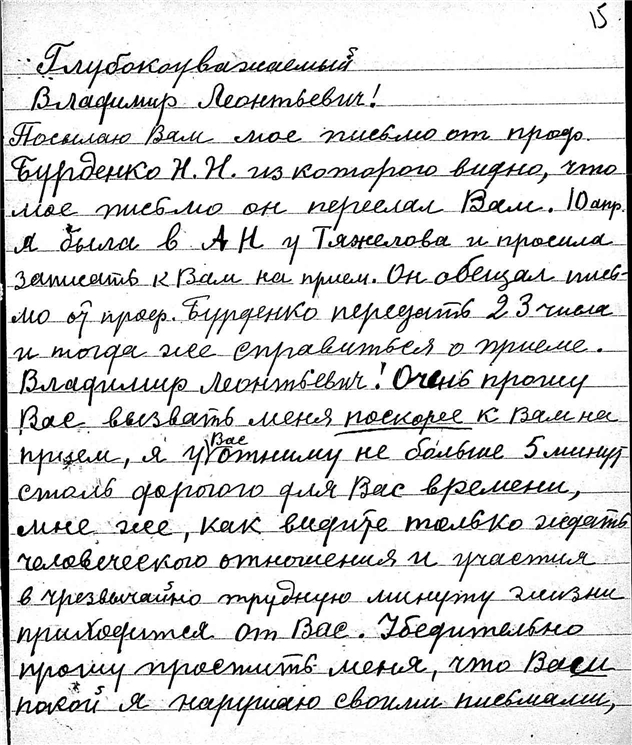 15
Глубокоуважаемый
Владимир Леонтьевич!
Посылаю Вам мое письмо от проф.
Бурденко Н.Н. из которого видно, что
мое письмо он переслал Вам. 10 апр.
я была в АН у Тяжелова и просила
записать к Вам на прием. Он обещал пись-
мо от проф. Бурденко передать 23 числа
и тогда же справиться о приеме.
Владимир Леонтьевич! Очень прошу
Вас вызвать меня поскорее к Вам на
прием, я у Вас отниму не больше 5 минут
столь дорогого для Вас времени,
мне же, как видите только ждать
человеческого отношения и участия
в чрезвычайно трудную минуту жизни
приходится от Вас. Убедительно
прошу простить меня, что Ваш
покой я нарушаю своими письмами,